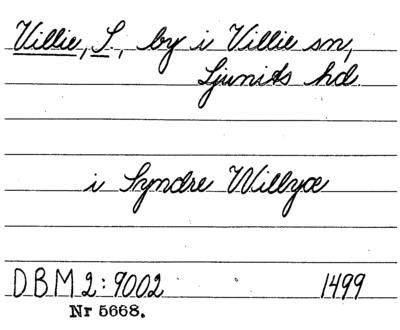 Villie, S., by i Villie sn,
Ljunits hd.
i Syndre Willyæ
DBM 2:9002 1499
Nr 5668.